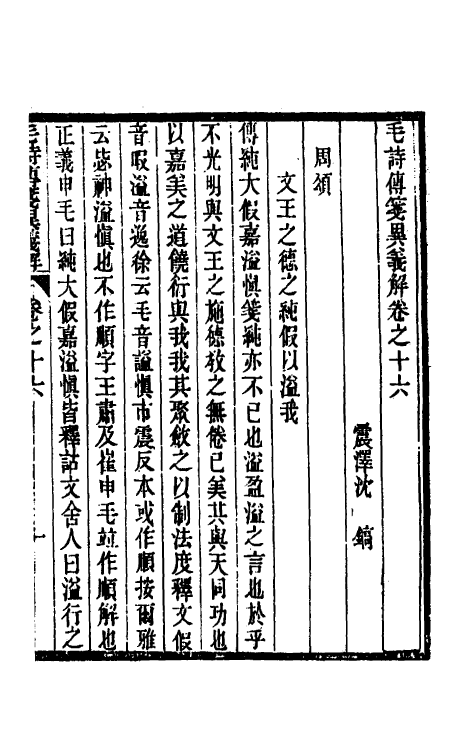 毛詩傳箋異義解卷之十六
震澤沈　鎬
周頌
文王之德之純假以溢我
傳純大假嘉溢慎箋純亦不已也溢盈溢之言也於乎
不光明與文王之施德教之無倦已美其與天同功也
以嘉美之道饒衍與我我其聚斂之以制法度釋文假
音暇溢音逸徐云毛音謚慎市震反本或作順按爾雅
云毖神溢慎也不作順字王肅及崔申毛並作順解也
正義申毛曰純大假嘉溢慎皆釋詁文舍人曰溢行之
毛詩傳箋異義解　卷之十六